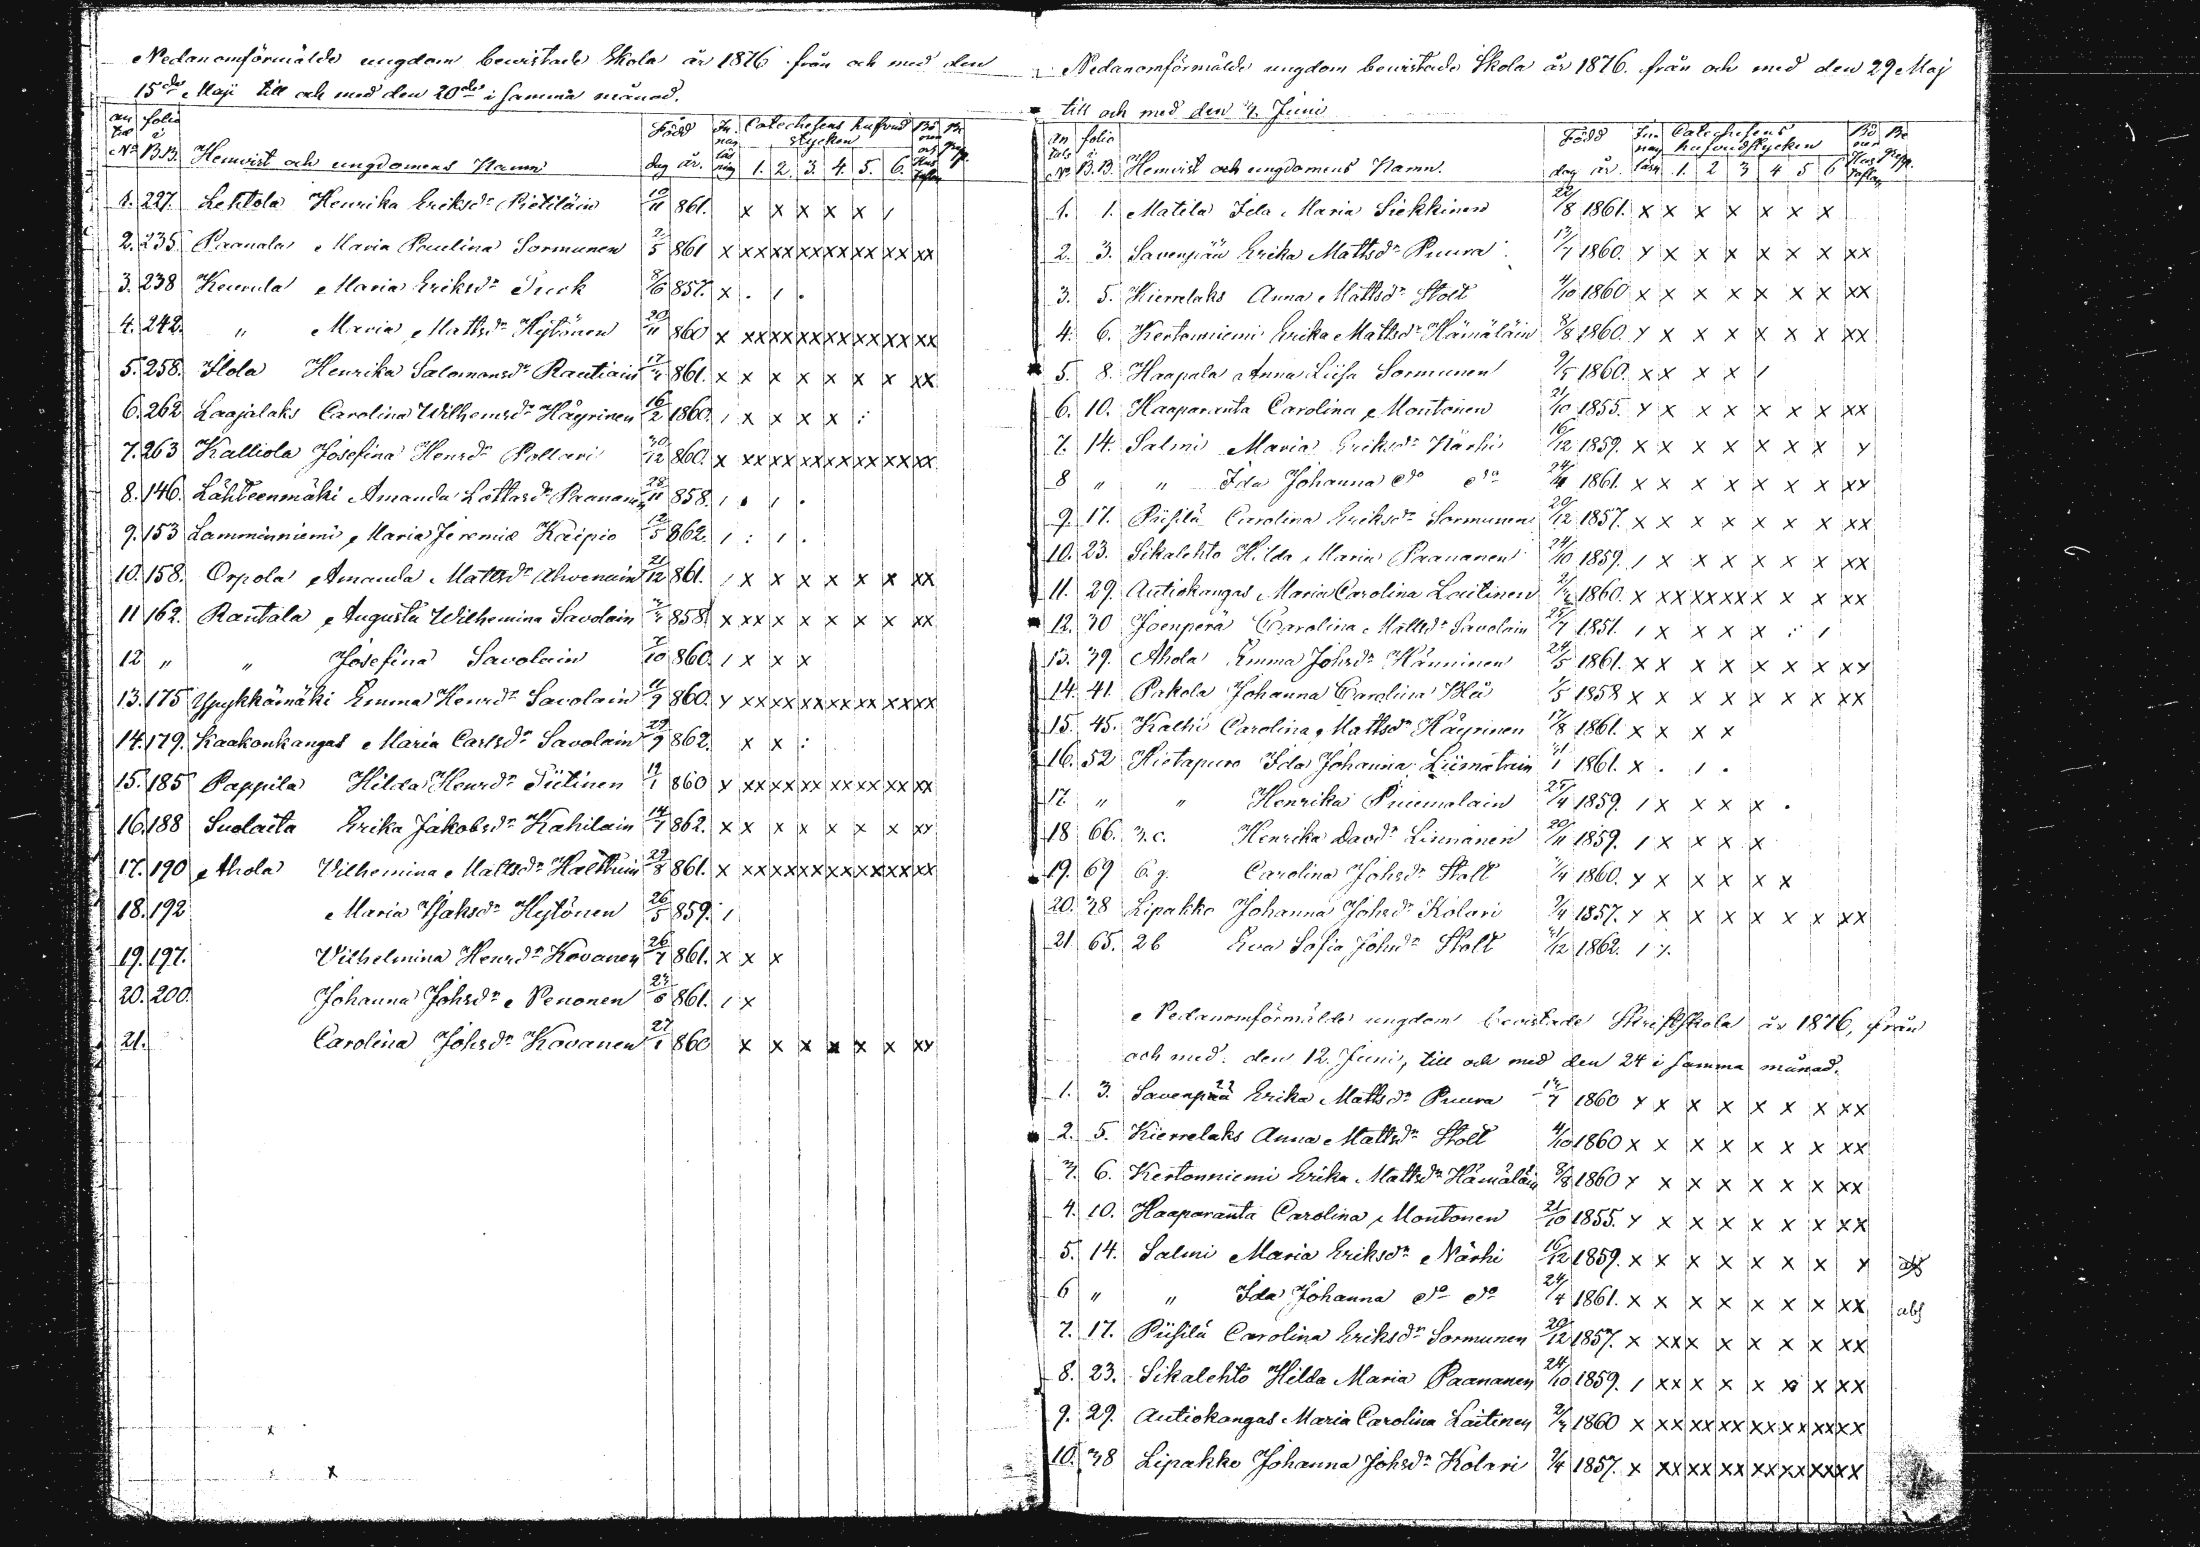 Nedanomförmälde ungdom bewistade Skola år 1876 från och med den
15de Maji till och med den 20de i samma månad.
Hemvist och ungdomens Namn Född dag år. Catechesens hufvud stycken 1. 2. 3. 4. 5. 6.
1. 227. Lehtola Henrika Eriksdr Pietiläin 10/11 861. x x x x x /
2. 235. Paanala Maria Paulina Sormunen 2/5 861 x xx xx xx xx xx xx xx
3. 238 Keurula Maria Eriksdr Tuck 8/6 857. x . / .
4. 242. " Maria Mattsdr Hytönen 20/11 860 x xx xx xx xx xx xx xx
5. 258. Ilola Henrika Salomonsdr Rautiain 861. x x x x x x x xx
6. 262 Laajalaks Carolina Wilhemsdr Häyrinen 16/2 1860. / x x x x :
7. 263 Kalliola Josefina Henrdr Pollari 30/12 860. x xx xx xx xx xx xx xx
8. 146. Lähteenmäki Amanda Lottasdr Paananen 28/11 858. / . / .
9. 153 Lamminniemi Maria Jeremiæ Kaipio 12/5 862. / : / .
10. 158. Orpola Amanda Mattsdr Ahvenain 21/12 861. / x x x x x x xx
11 162. Rantala Augusta Wilhemina Savolain 858. x xx x x x x x xx
12 " " Josefina Savolain 7/10 860. / x x x
13. 175 Ypykkämäki Emma Henrdr Savolain 11/9 860. x xx xx xx xx xx xx xx
14. 179. Kaakonkangas Maria Carlsdr Savolain 29/9 862. x x :
15. 185 Pappila Hilda Henrdr Tiitinen 19/1 860 x xx xx xx xx xx xx xx
16. 188 Suolaita Erika Jakobsdr Kahilain 14/7 862. x x x x x x x xx
17. 190 Ahola Vilhemina Mattsdr Halttuin 29/8 861. x xx xx xx xx xx xx xx
18. 192 Maria Isaksdr Hytönen 26/5 859. /
19. 197. Vilhelmina Henrdr Kovanen 26/7 861. x x x
20. 200. Johanna Johsdr Penonen 861. / x
21. Carolina Johsdr Kovanen 27/1 860 x x x x x x xx
Nedanomförmälde ungdom bewistade Skola år 1876. från och med den 29 Maj
till och med den 3. Juni
Hemvist och ungdomens Namn. Född dag år. Catechesens hufvudstycken 1. 2 3 4 5 6
1. 1. Matila Ida Maria Siekkinen 22/8 1861. x x x x x x x
2. 3. Savenpää Erika Mattsdr Puura 13/7 1860. x x x x x x x xx
3. 5. Kierrelaks Anna Mattsdr Stolt 4/10 1860 x x x x x x x xx
4. 6. Kertonniemi Erika Mattsdr Hämäläin 8/8 1860. x x x x x x x xx
5. 8. Haapala Anna Liisa Sormunen 9/5 1860. x x x x /
6. 10. Haaparanta Carolina Montonen 21/10 1855. x x x x x x x xx
7. 14. Salmi Maria Eriksdr Närhi 16/12 1859. x x x x x x x x
8 " " Ida Johanna do do 24/4 1861. x x x x x x x xx
9. 17. Piisilä Carolina Eriksdr Sormunen 20/12 1857. x x x x x x x xx
10. 23. Sikalehto Hilda Maria Paananen 24/10 1859. / x x x x x x xx
11. 29. Autiokangas Maria Carolina Laitinen 1860. x xx xx xx x x x xx
12. 30 Joenperä Carolina Mattsdr Savolain 25/7 1851. / x x x x : /
13. 39. Ahola Emma Johsdr Hänninen 24/5 1861. x x x x x x x xx
14. 41. Pakola Johanna Carolina Blå 1/5 1858 x x x x x x x xx
15. 45. Kalhi Carolina Mattsdr Häyrinen 17/8 1861. x x x x
16. 52 Hietapuro Ida Johanna Liimatain 31/1 1861. x . / .
17 " " Henrika Piiemalain 25/4 1859. / x x x x .
18 66. 3.c. Henrika Davdr Linnanen 20/11 1859. / x x x x
19. 69 6.g. Carolina Johsdr Stolt 1/4 1860. x x x x x x
20. 38 Lipakko Johanna Johsdr Kolari 9/4 1857. x x x x x x x xx
21 65. 2b Eva Sofia Johsdr Stolt 31/12 1862. /
Nedanomförmälde ungdom bewistade Skriftskola år 1876, från
och med den 12. Juni, till och med den 24 i samma månad.
1. 3. Savenpää Erika Mattsdr Puura 13/7 1860 x x x x x x x xx
2. 5. Kierrelaks Anna Mattsdr Stolt 4/10 1860 x x x x x x x xx
3. 6. Kertonniemi Erika Mattsdr Hämäläin 8/8 1860 x x x x x x x xx
4. 10. Haaparanta Carolina Montonen 21/10 1855. x x x x x x x xx
5. 14. Salmi Maria Eriksdr Närhi 16/12 1859. x x x x x x x x abs
6 " " Ida Johanna do do 24/4 1861. x x x x x x x xx abs
7. 17. Piisilä Carolina Eriksdr Sormunen 20/12 1857. x xx x x x x x xx
8. 23. Sikalehto Hilda Maria Paananen 24/10 1859. / xx x x x x x xx
9. 29. Autiokangas Maria Carolina Laitinen 1860 x xx xx xx xx xx xx xx
10. 38 Lipakko Johanna Johsdr Kolari 9/4 1857. x xx xx xx xx xx xx xx